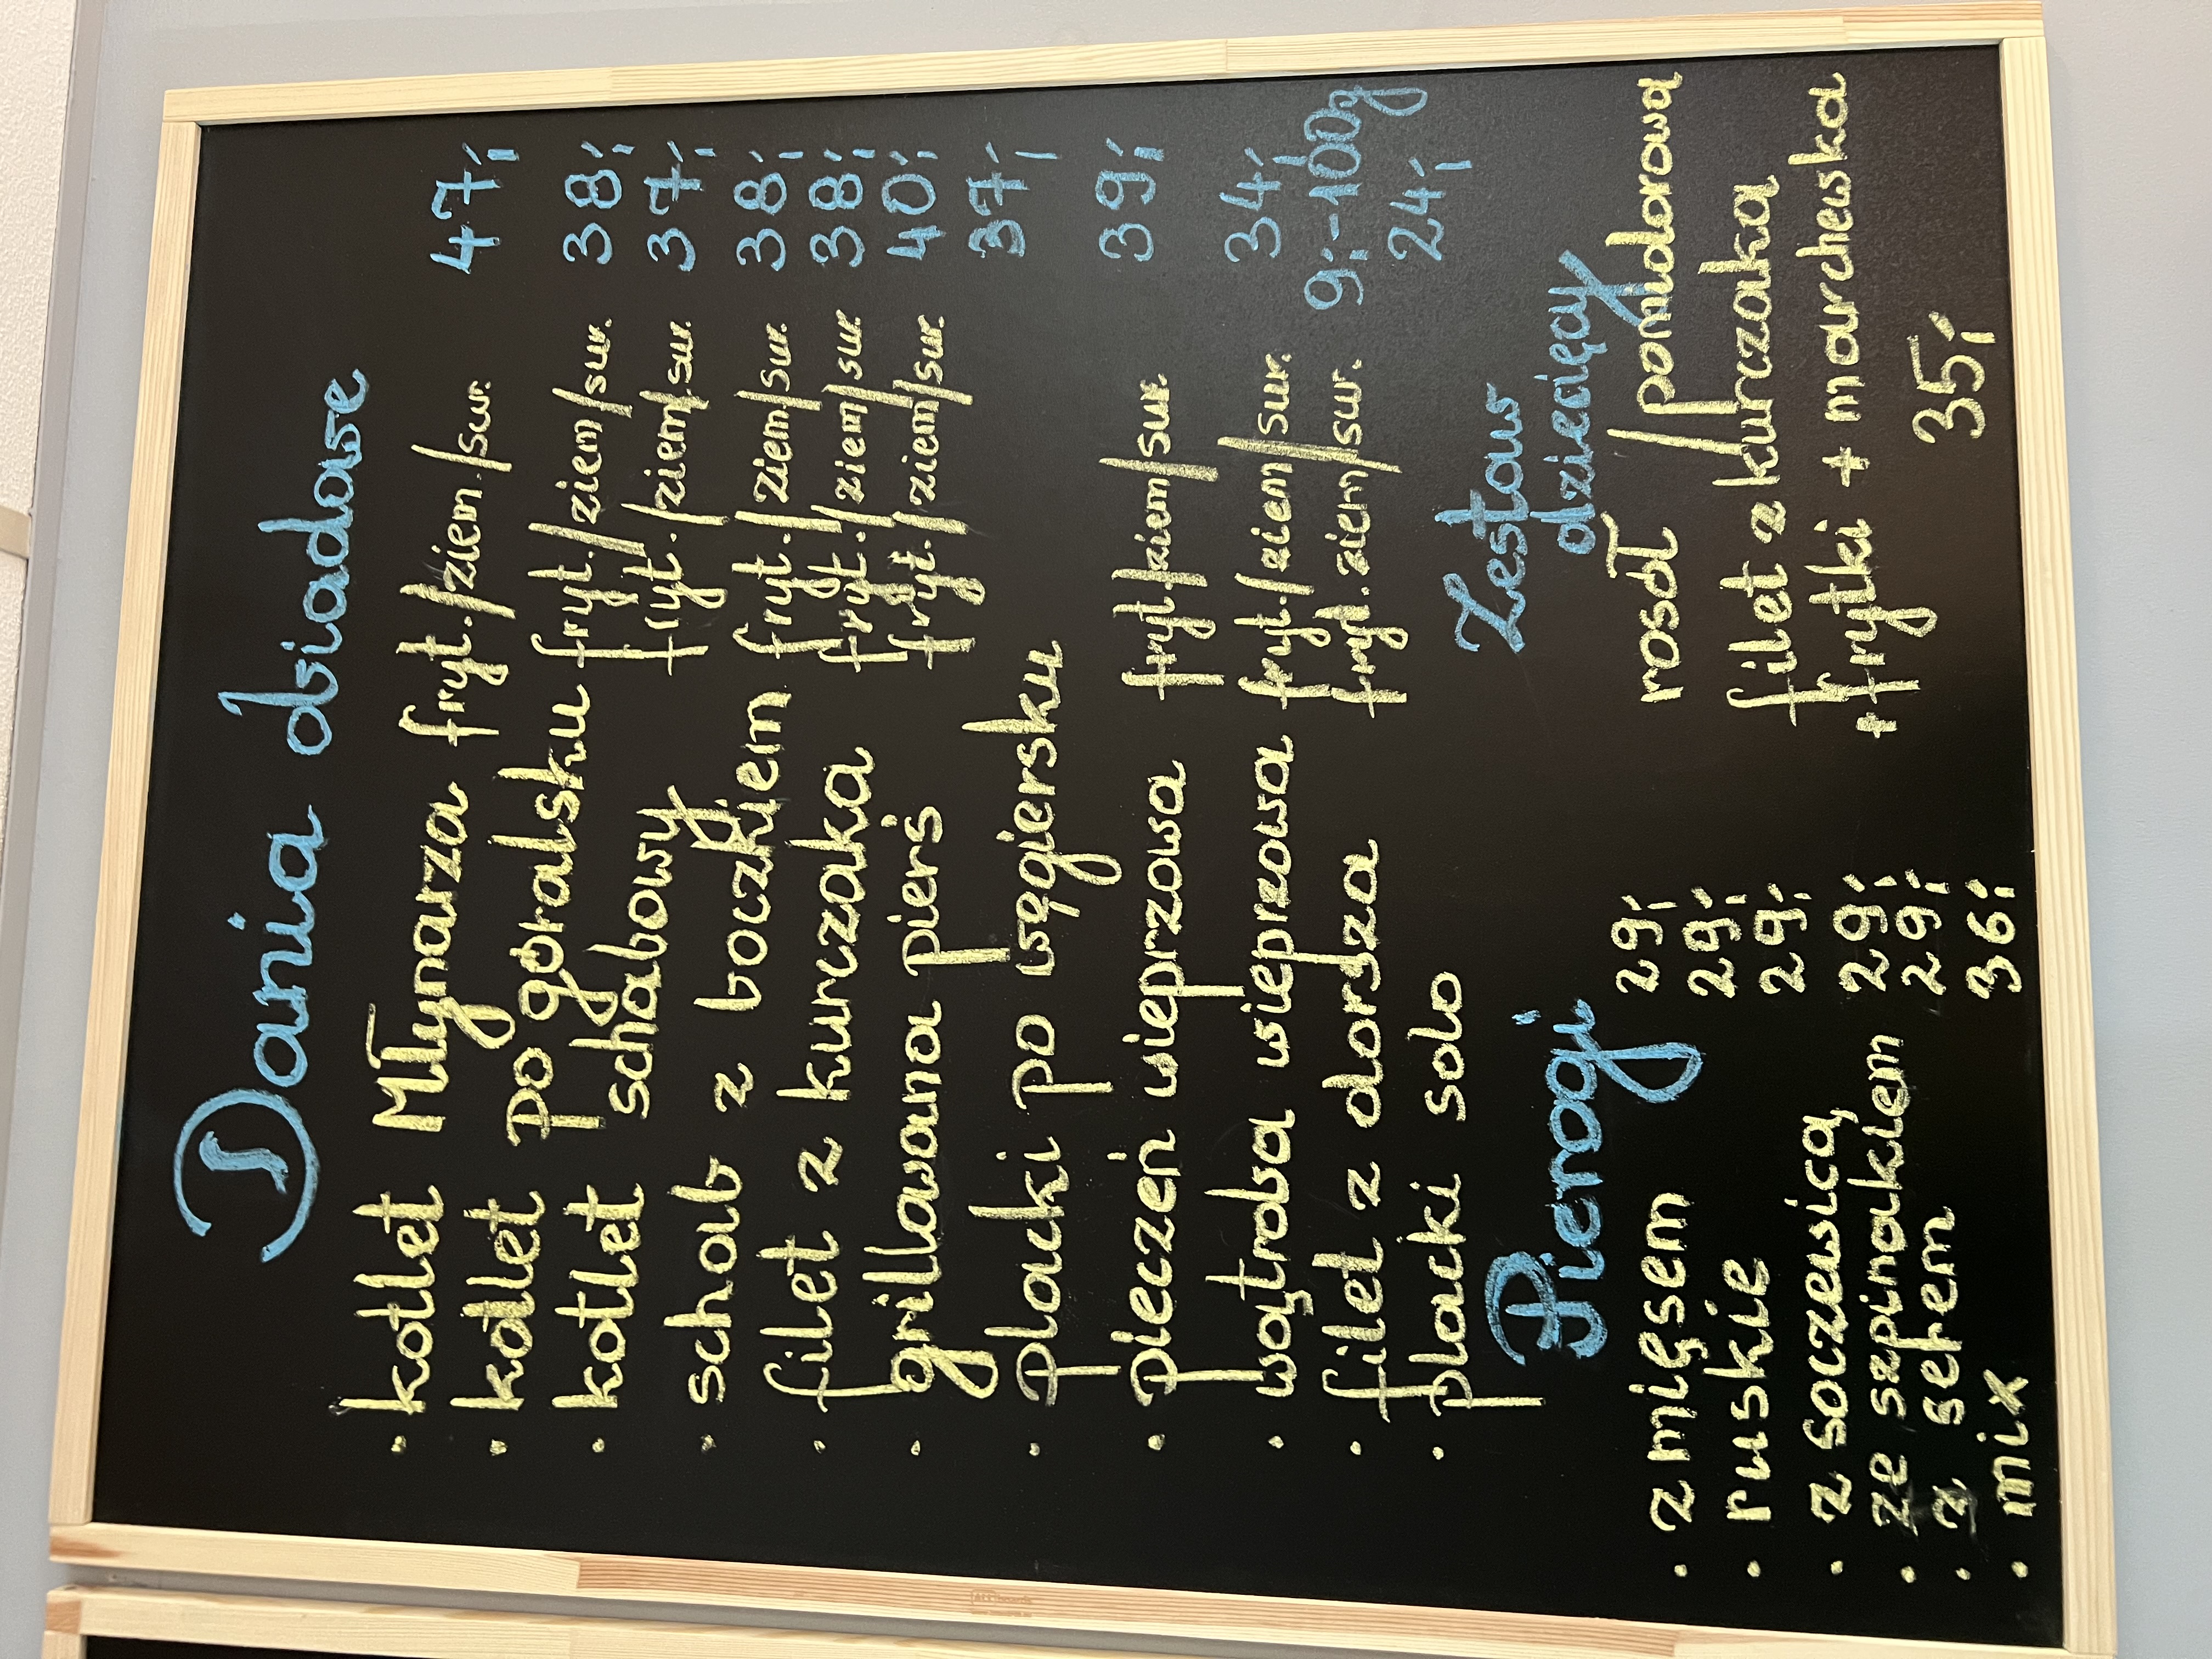 Dania obiadowe
• kotlet Młynarza fryt./ziem./sur. 47,-
• kotlet po goralsku fryt./ziem/sur. 38,-
• kotlet schabowy fryt./ziem/sur. 37,-
• schab z boczkiem fryt./ziem/sur. 38,-
• filet z kurczaka fryt./ziem/sur 38,-
• grillowana pierś fryt./ziem/sur. 40,-
• placki po węgiersku 37,-
• pieczeń wieprzowa fryt/ziem/sur. 39,-
• wątroba wieprzowa fryt./ziem/sur. 34,-
• filet z dorsza fryt. ziem/sur. 9,-100g
• placki solo 24,-
Pierogi
• z mięsem 29,-
• ruskie 29,-
• z soczewicą 29,-
• ze szpinakiem 29,-
• z serem 29,-
• mix 36,-
Zestaw
dziecięcy
rosół/pomidorowa
filet z kurczaka
+ frytki + marchewka
35,-